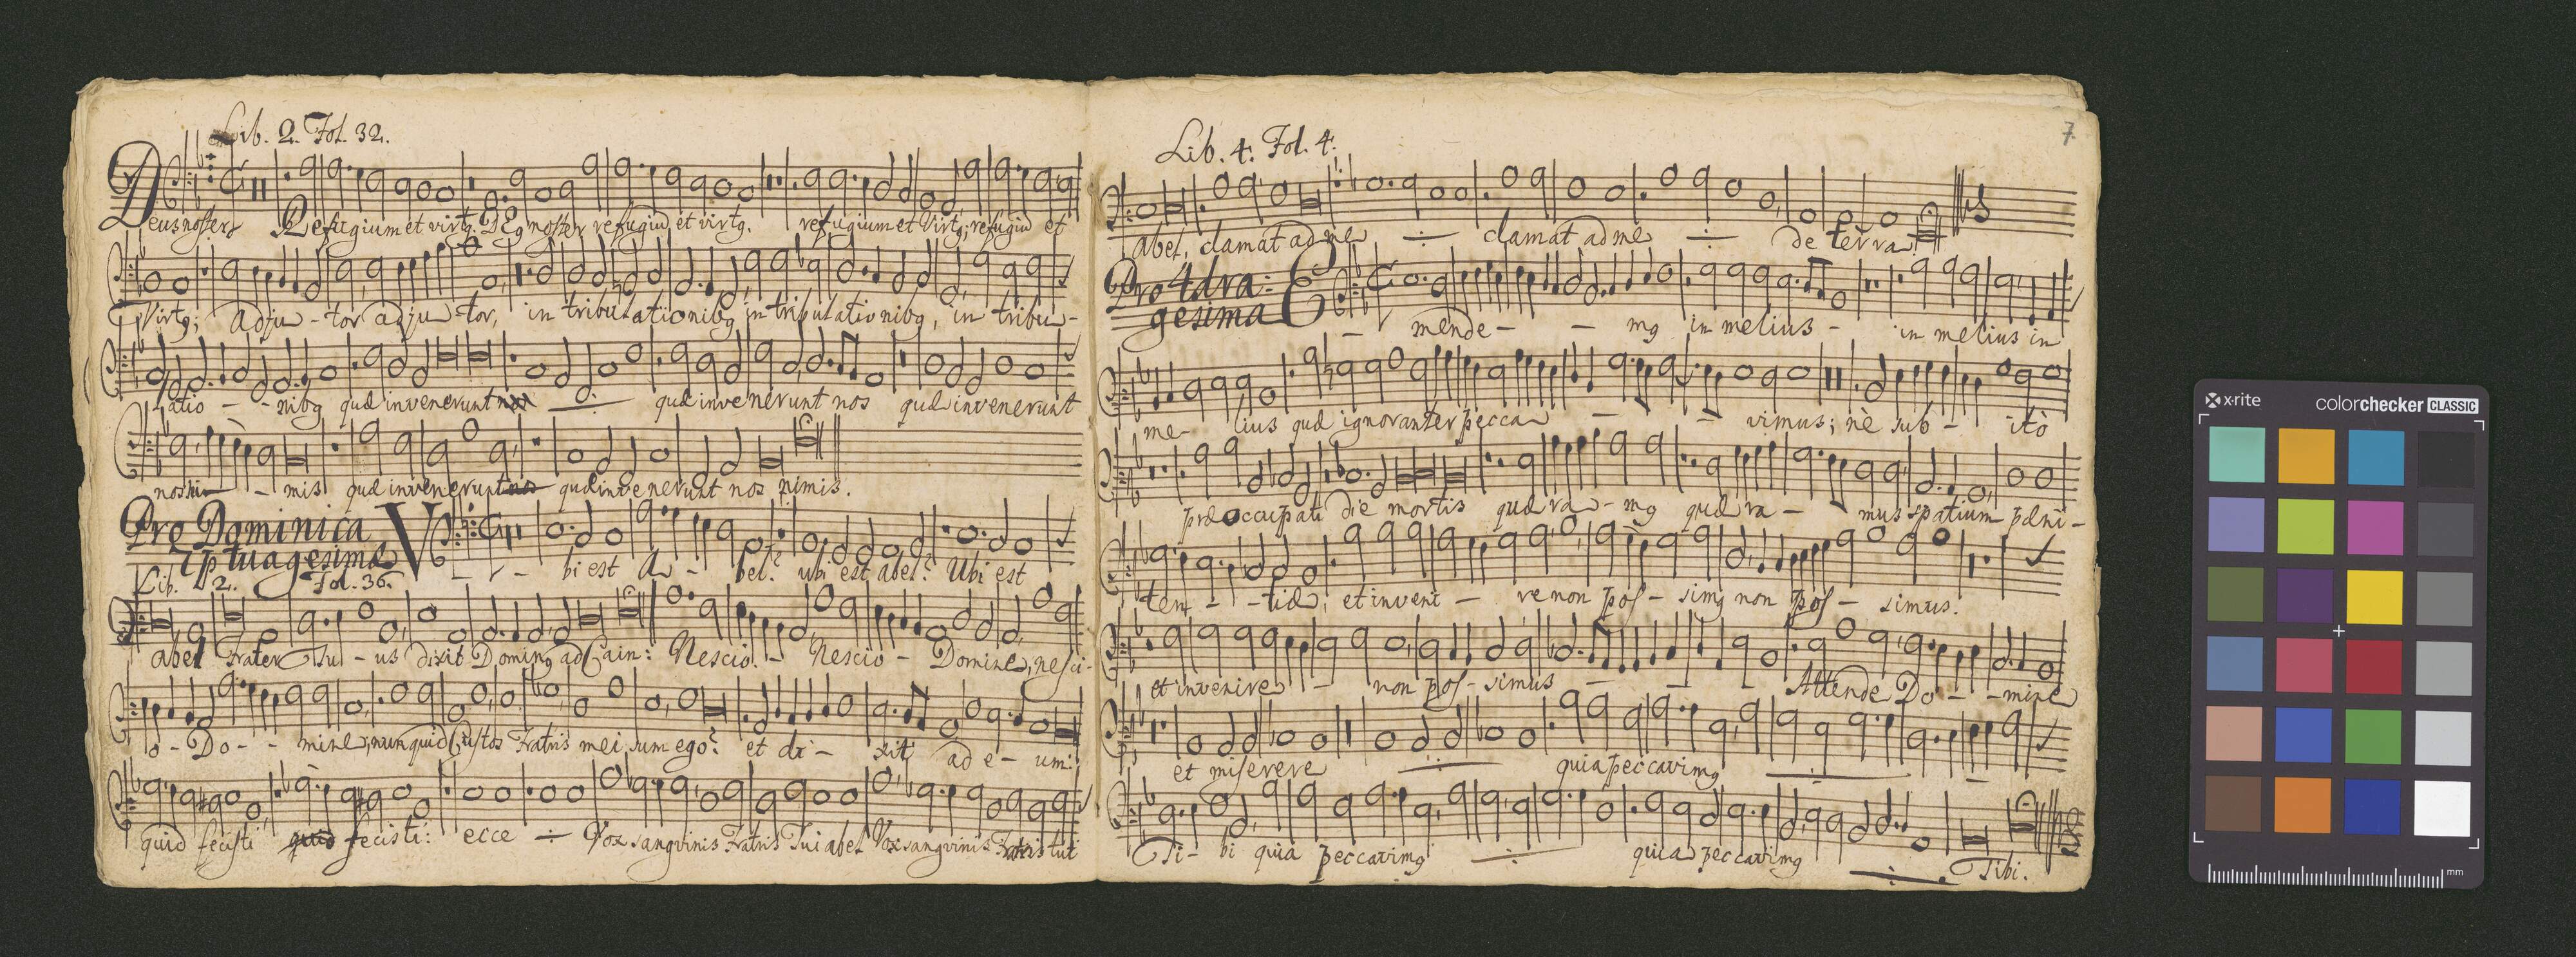 Lib. 2. Fol. 32.
Deus noster Refugium et virtg. DEg noster refugiū et virtg. refugium et Virtg; refugiū et
Virtg; Adju - tor adju - tor, in tribulationibg in tribulationibg, in tribu-
latio - - nibg quæ invenerunt nos ÷ quæ invenerunt nos quæ invenerunt
nos ni - - mis quæ invenerunt nos quæ invenerunt nos nimis.
Pro Dominica
Sptuagesima
Lib. 2. Fol. 36.
V - - bi est A - bel? ubi est abel? Ubi est
abel Frater Tu - us dixit Doming ad Cain: Nescio - Nescio - Domine, nesci-
o - Do - - mine; nunquid Custos Fratris mei sum ego? et di - xit ad e - um:
quid fecisti quid fecisti: ecce ÷ Vox sangvinis Fratris Tui abel Vox sangvinis Fratris tui
7.
Lib. 4. Fol. 4.
Abel, clamat ad me ÷ clamat ad me ÷ de terra.
Pro 4dra:
gesima
E - mende - - mg in melius - in melius in
me- lius quæ ignoranter pecca - - vimus; nè sub - itò
præoccupati die mortis quæra - mg quæra - mus spatium pæni-
ten - - tiæ, et inveni - re non pos - simg non pos - simus.
et invenire - non pos - simus - - - Attende Do - - mine
et miserere ÷ quia peccavimg ÷
Ti - bi quia peccavimg ÷ quia peccavimg ÷ Tibi.
x-rite
colorchecker CLASSIC
mm